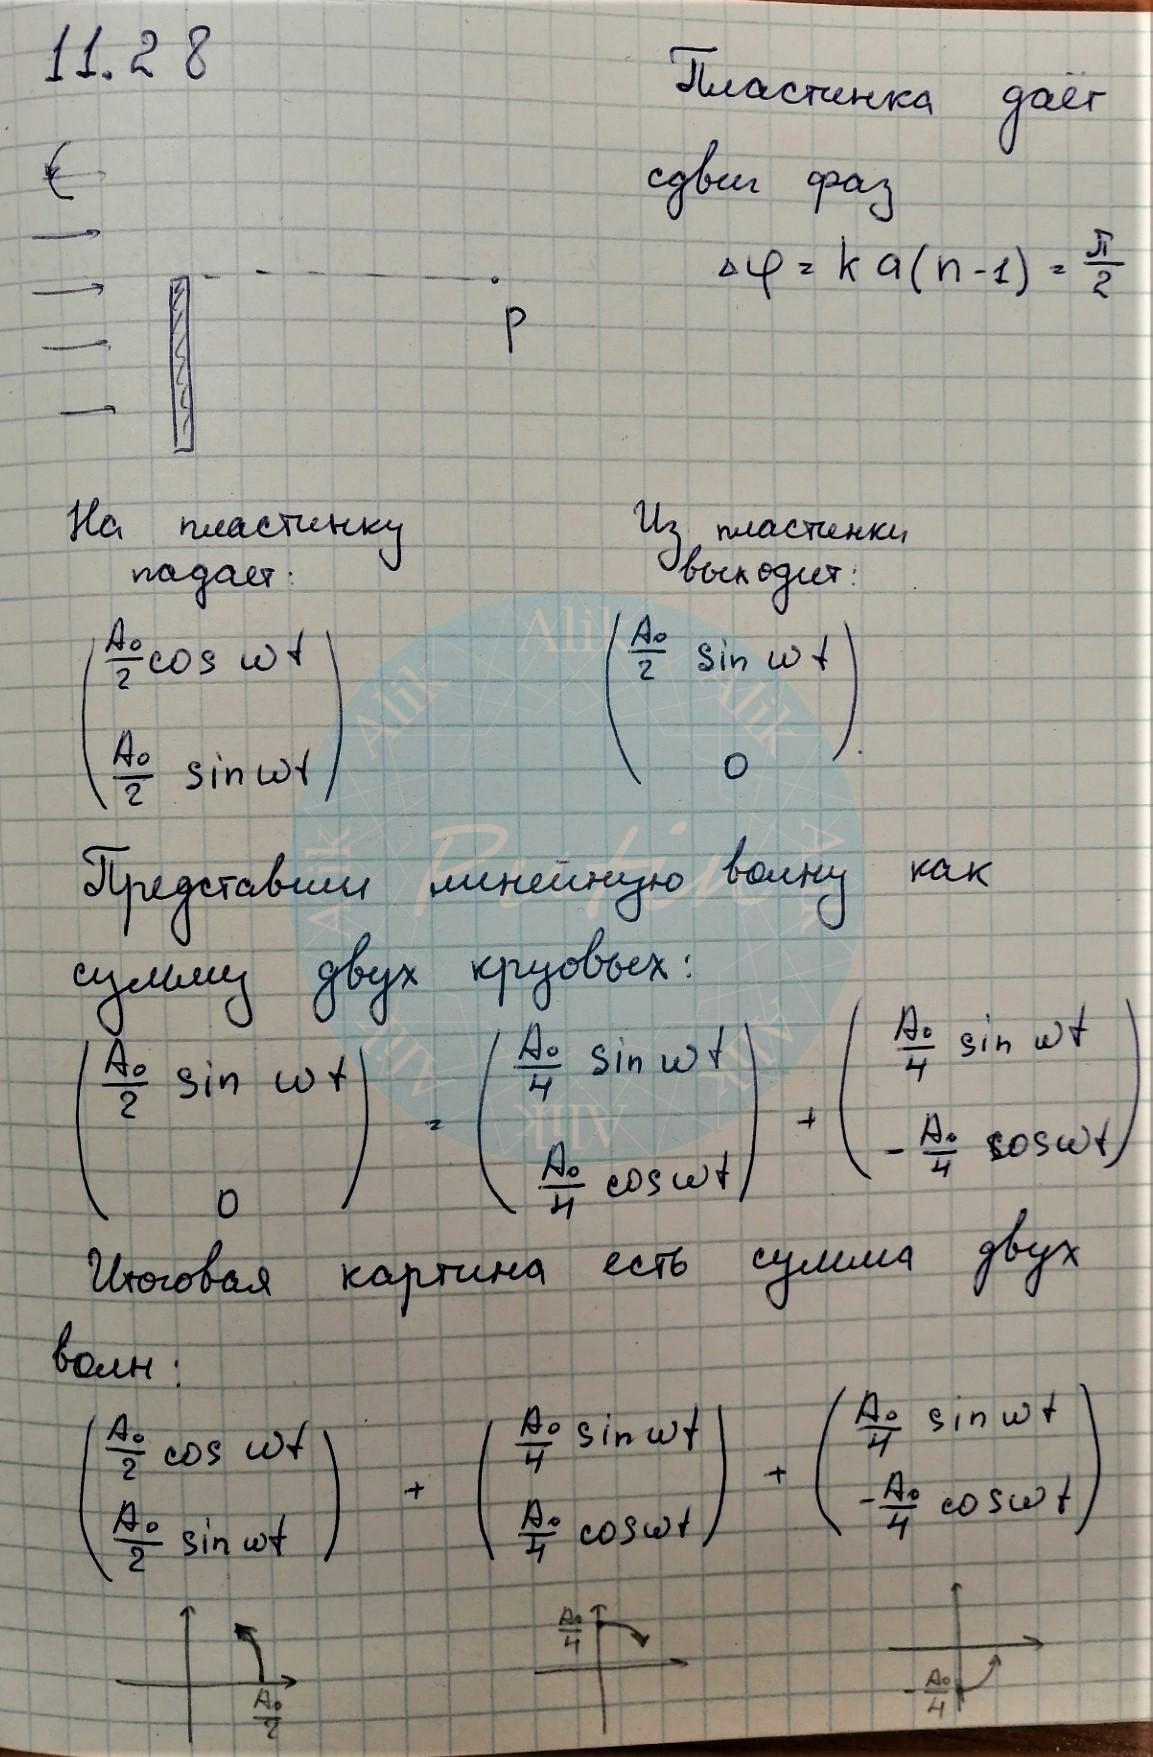 11.28
Пластинка даёт
сдвиг фаз
Δφ = k a(n-1) = π/2
P
На пластинку
падает:
Из пластинки
выходит:
(A₀/2 cos ωt
A₀/2 sin ωt)
(A₀/2 sin ωt
0)
Представим линейную волну как
сумму двух круговых:
(A₀/2 sin ωt
0) = (A₀/4 sin ωt
A₀/4 cos ωt) + (A₀/4 sin ωt
- A₀/4 cos ωt)
Итоговая картина есть сумма двух
волн:
(A₀/2 cos ωt
A₀/2 sin ωt) + (A₀/4 sin ωt
A₀/4 cos ωt) + (A₀/4 sin ωt
-A₀/4 cos ωt)
A₀/2
A₀/4
-A₀/4
Alik
Alik
Alik
Alik
Alik
Alik